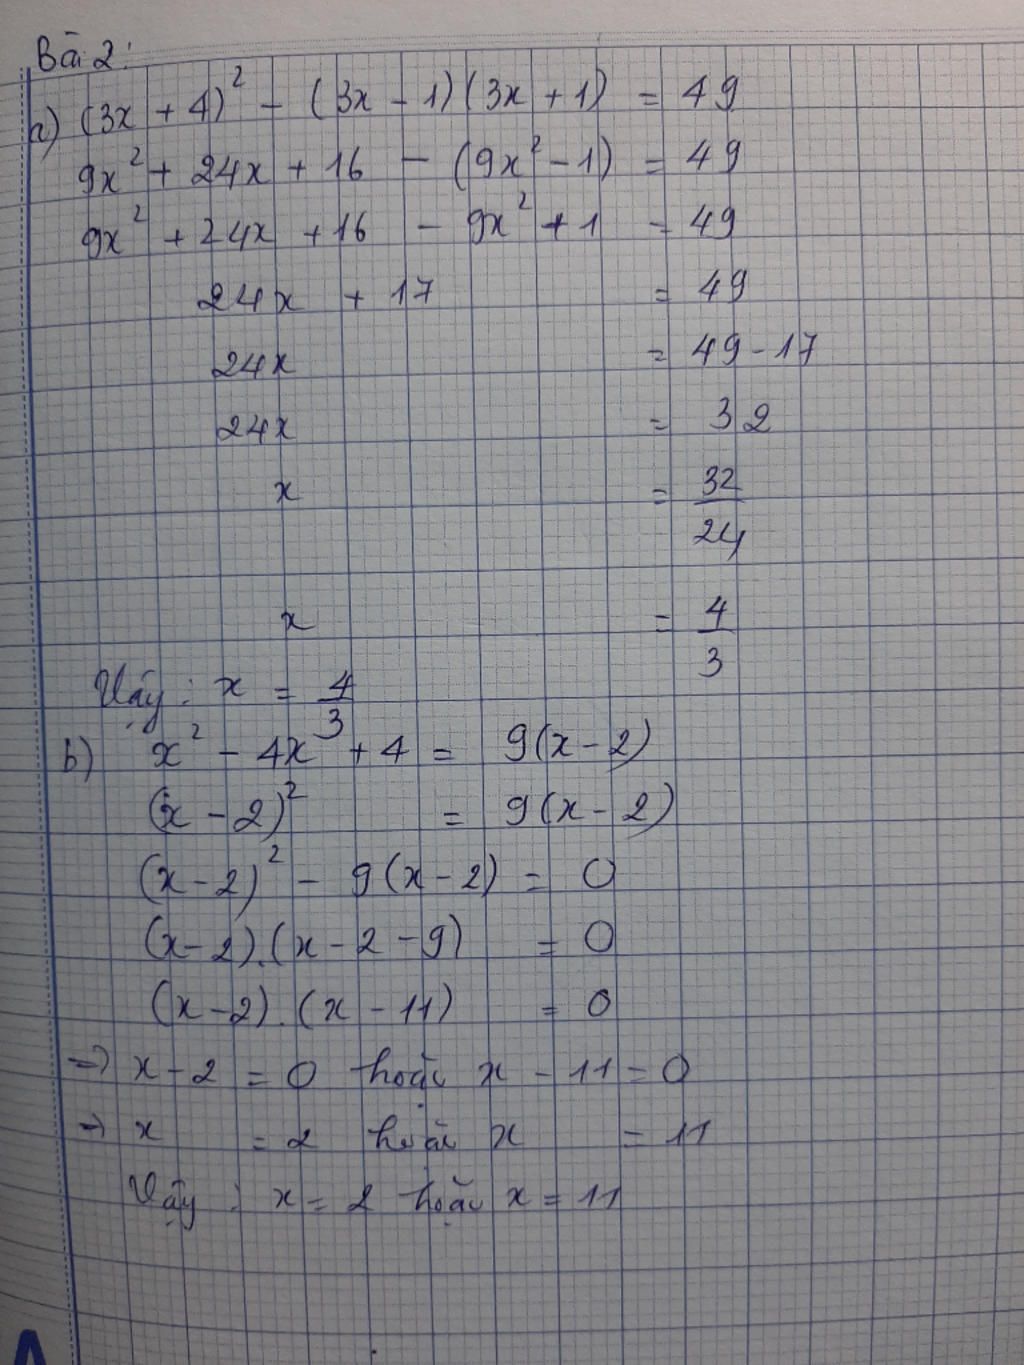 Bài 2:
a) (3x + 4)² - (3x - 1)(3x + 1) = 49
9x² + 24x + 16 - (9x² - 1) = 49
9x² + 24x + 16 - 9x² + 1 = 49
24x + 17 = 49
24x = 49 - 17
24x = 32
x = 32/24
x = 4/3
Vậy: x = 4/3
b) x² - 4x + 4 = 9(x - 2)
(x - 2)² = 9(x - 2)
(x - 2)² - 9(x - 2) = 0
(x - 2).(x - 2 - 9) = 0
(x - 2).(x - 11) = 0
=> x - 2 = 0 hoặc x - 11 = 0
=> x = 2 hoặc x = 11
Vậy : x = 2 hoặc x = 11